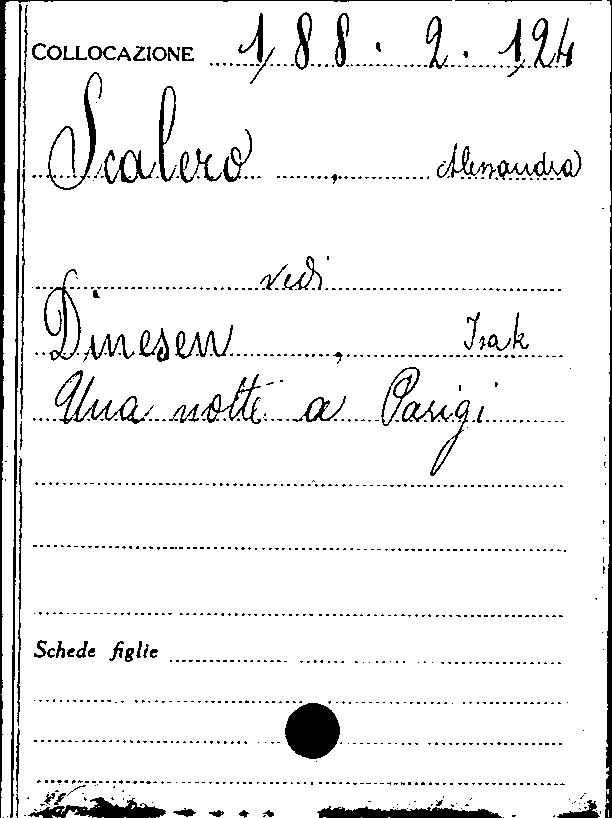 COLLOCAZIONE 188.2.124
Scalero, Alessandra
vedi
Dinesen, Isak
Una notte a Parigi
Schede figlie